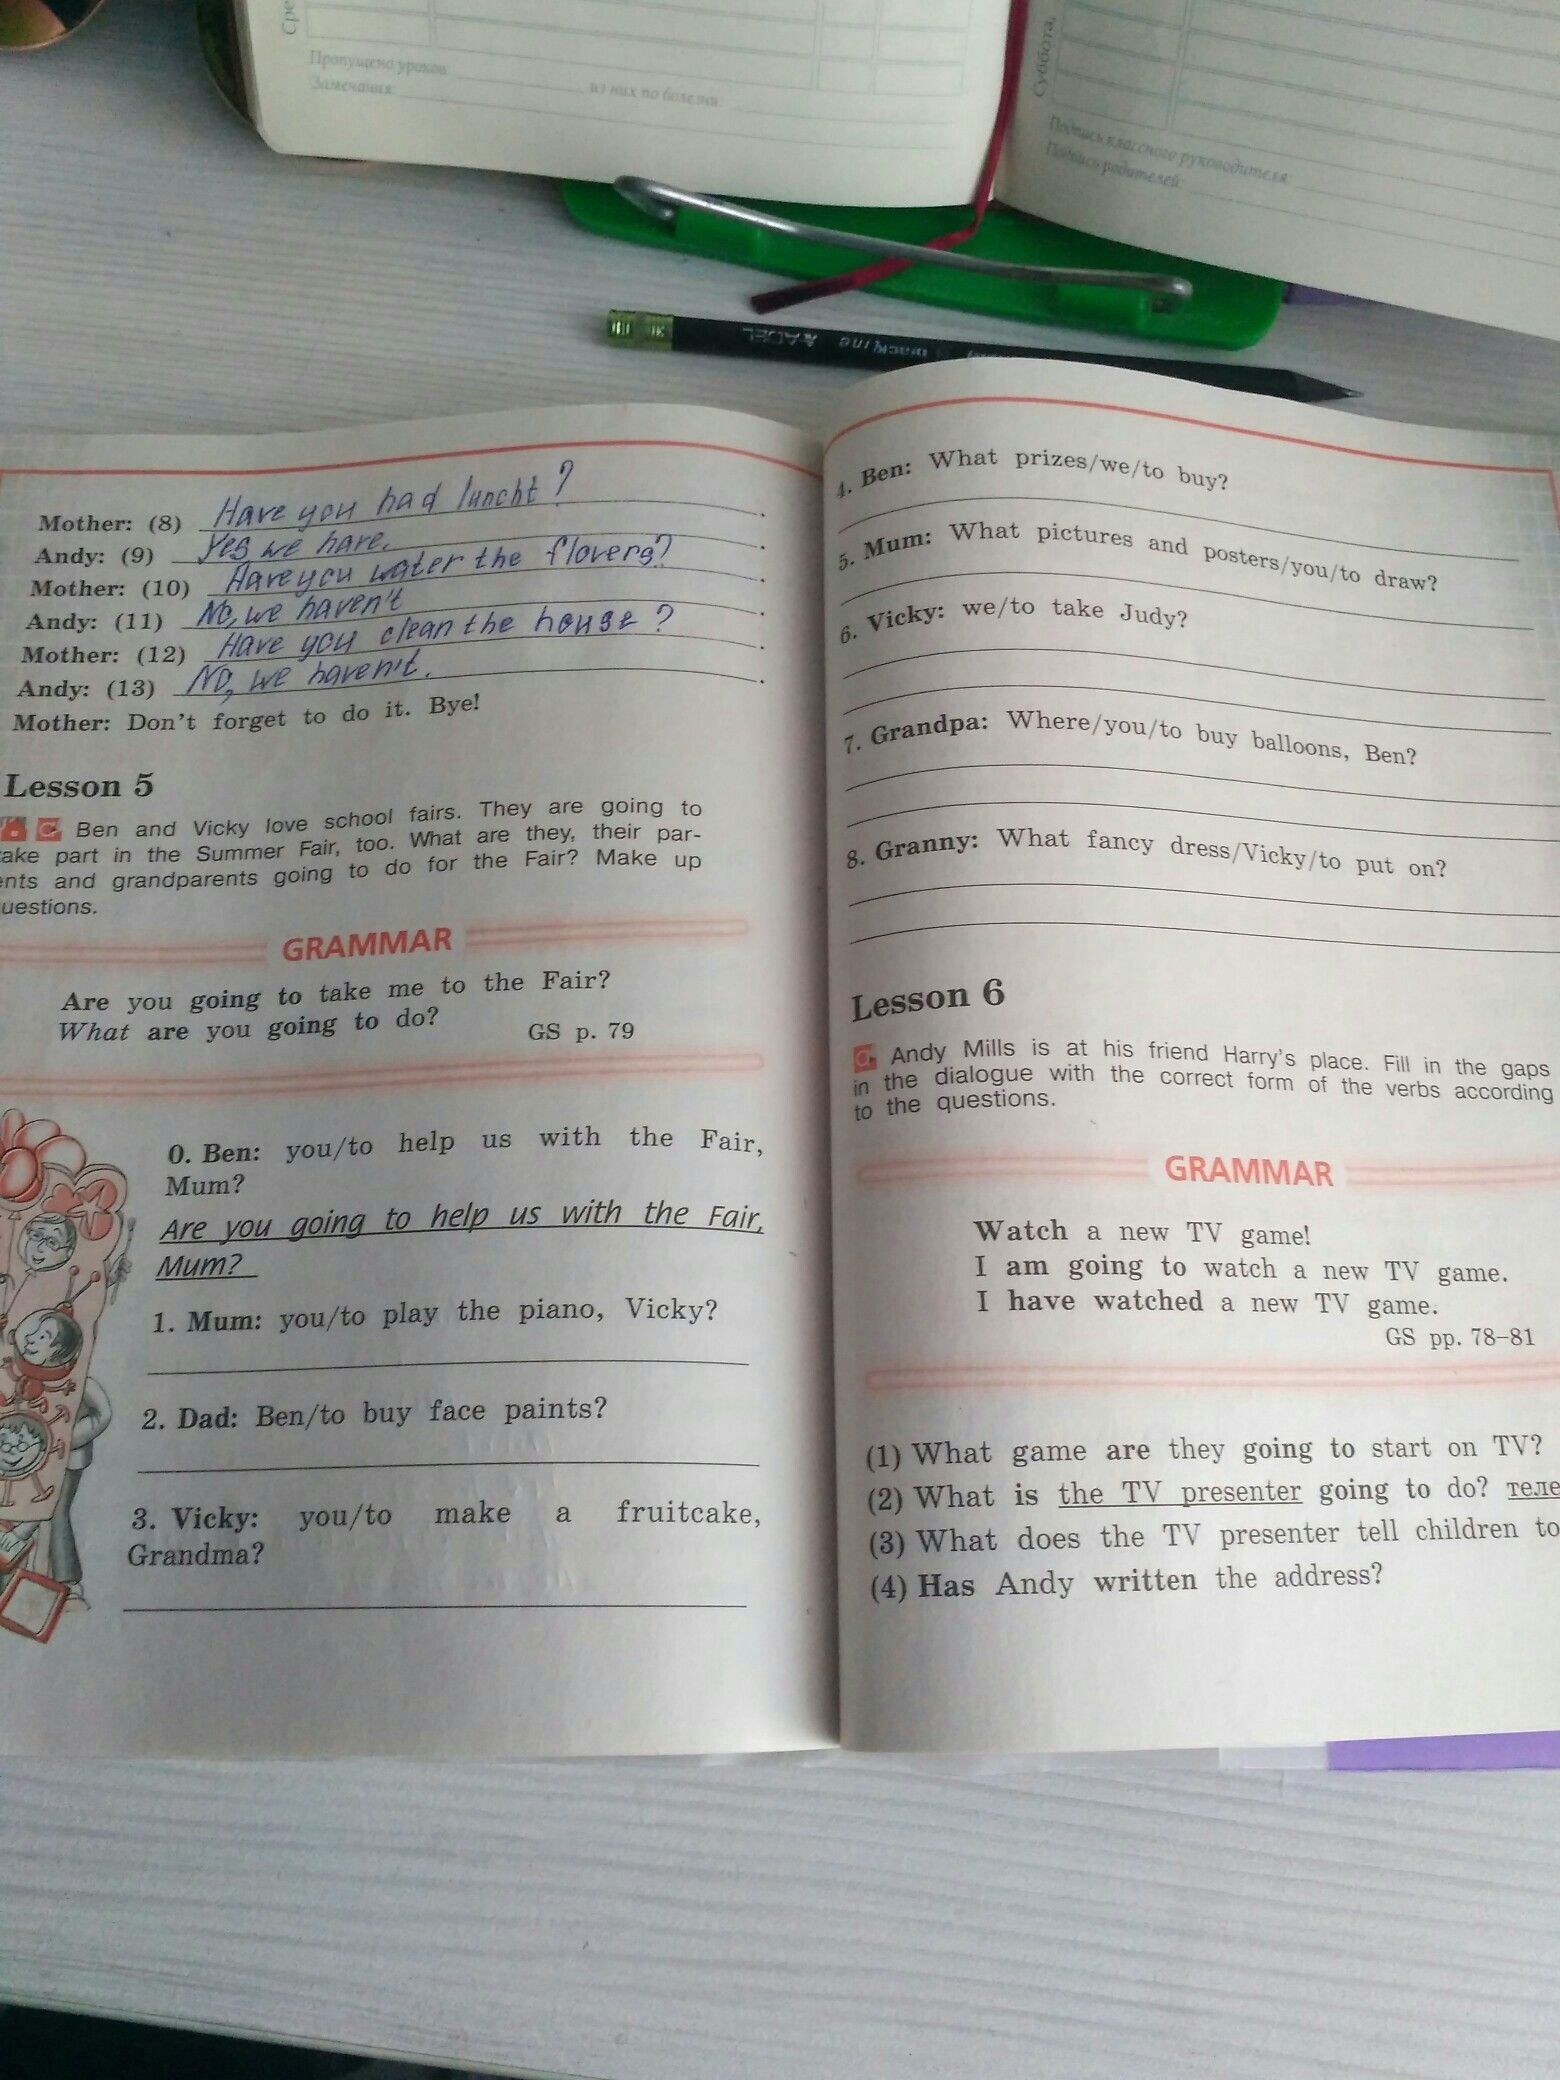 Сре
Пропущено уроков:
из них по болезни
Замечания:
Суббота,
Подпись классного руководителя:
Подпись родителей:
ADEL blackline
Mother: (8) Have you had luncht?.
Andy: (9) Yes we have.
Mother: (10) Have you water the flovers?.
Andy: (11) No, we haven't.
Mother: (12) Have you clean the house?.
Andy: (13) No, we haven't.
Mother: Don't forget to do it. Bye!
Lesson 5
Ben and Vicky love school fairs. They are going to
ake part in the Summer Fair, too. What are they, their par-
ents and grandparents going to do for the Fair? Make up
uestions.
GRAMMAR
Are you going to take me to the Fair?
What are you going to do?
GS p. 79
0. Ben: you/to help us with the Fair,
Mum?
Are you going to help us with the Fair,
Mum?
1. Mum: you/to play the piano, Vicky?
2. Dad: Ben/to buy face paints?
3. Vicky: you/to make a fruitcake,
Grandma?
4. Ben: What prizes/we/to buy?
5. Mum: What pictures and posters/you/to draw?
6. Vicky: we/to take Judy?
7. Grandpa: Where/you/to buy balloons, Ben?
8. Granny: What fancy dress/Vicky/to put on?
Lesson 6
Andy Mills is at his friend Harry's place. Fill in the gaps
in the dialogue with the correct form of the verbs according
to the questions.
GRAMMAR
Watch a new TV game!
I am going to watch a new TV game.
I have watched a new TV game.
GS pp. 78–81
(1) What game are they going to start on TV?
(2) What is the TV presenter going to do? теле
(3) What does the TV presenter tell children to
(4) Has Andy written the address?